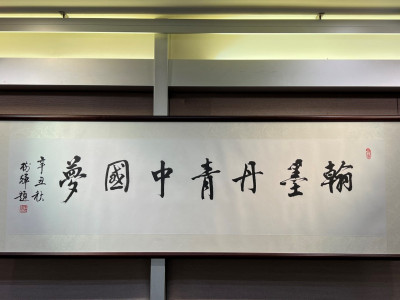 翰墨丹青中國夢
辛丑秋